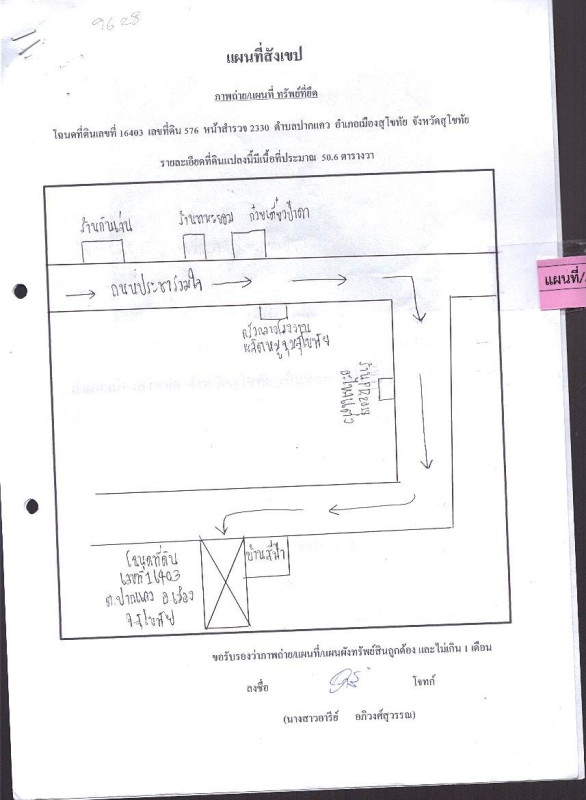 9628
แผนที่สังเขป
ภาพถ่าย/แผนที่ ทรัพย์ที่ยึด
โฉนดที่ดินเลขที่ 16403 เลขที่ดิน 576 หน้าสำรวจ 2330 ตำบลปากแคว อำเภอเมืองสุโขทัย จังหวัดสุโขทัย
รายละเอียดที่ดินแปลงนี้มีเนื้อที่ประมาณ 50.6 ตารางวา
ร้านก๊วนเล่น
ก๋วยเตี๋ยวป้าดา
แผนที่/
ถนนประชาร่วมใจ
บ้านสีฟ้า
โฉนดที่ดิน
เลขที่ 16403
ต.ปากแคว อ.เมือง
จ.สุโขทัย
ขอรับรองว่าภาพถ่าย/แผนที่/แผนผังทรัพย์สินถูกต้อง และไม่เกิน 1 เดือน
ลงชื่อ โจทก์
(นางสาวอารีย์ อภิวงศ์สุวรรณ)